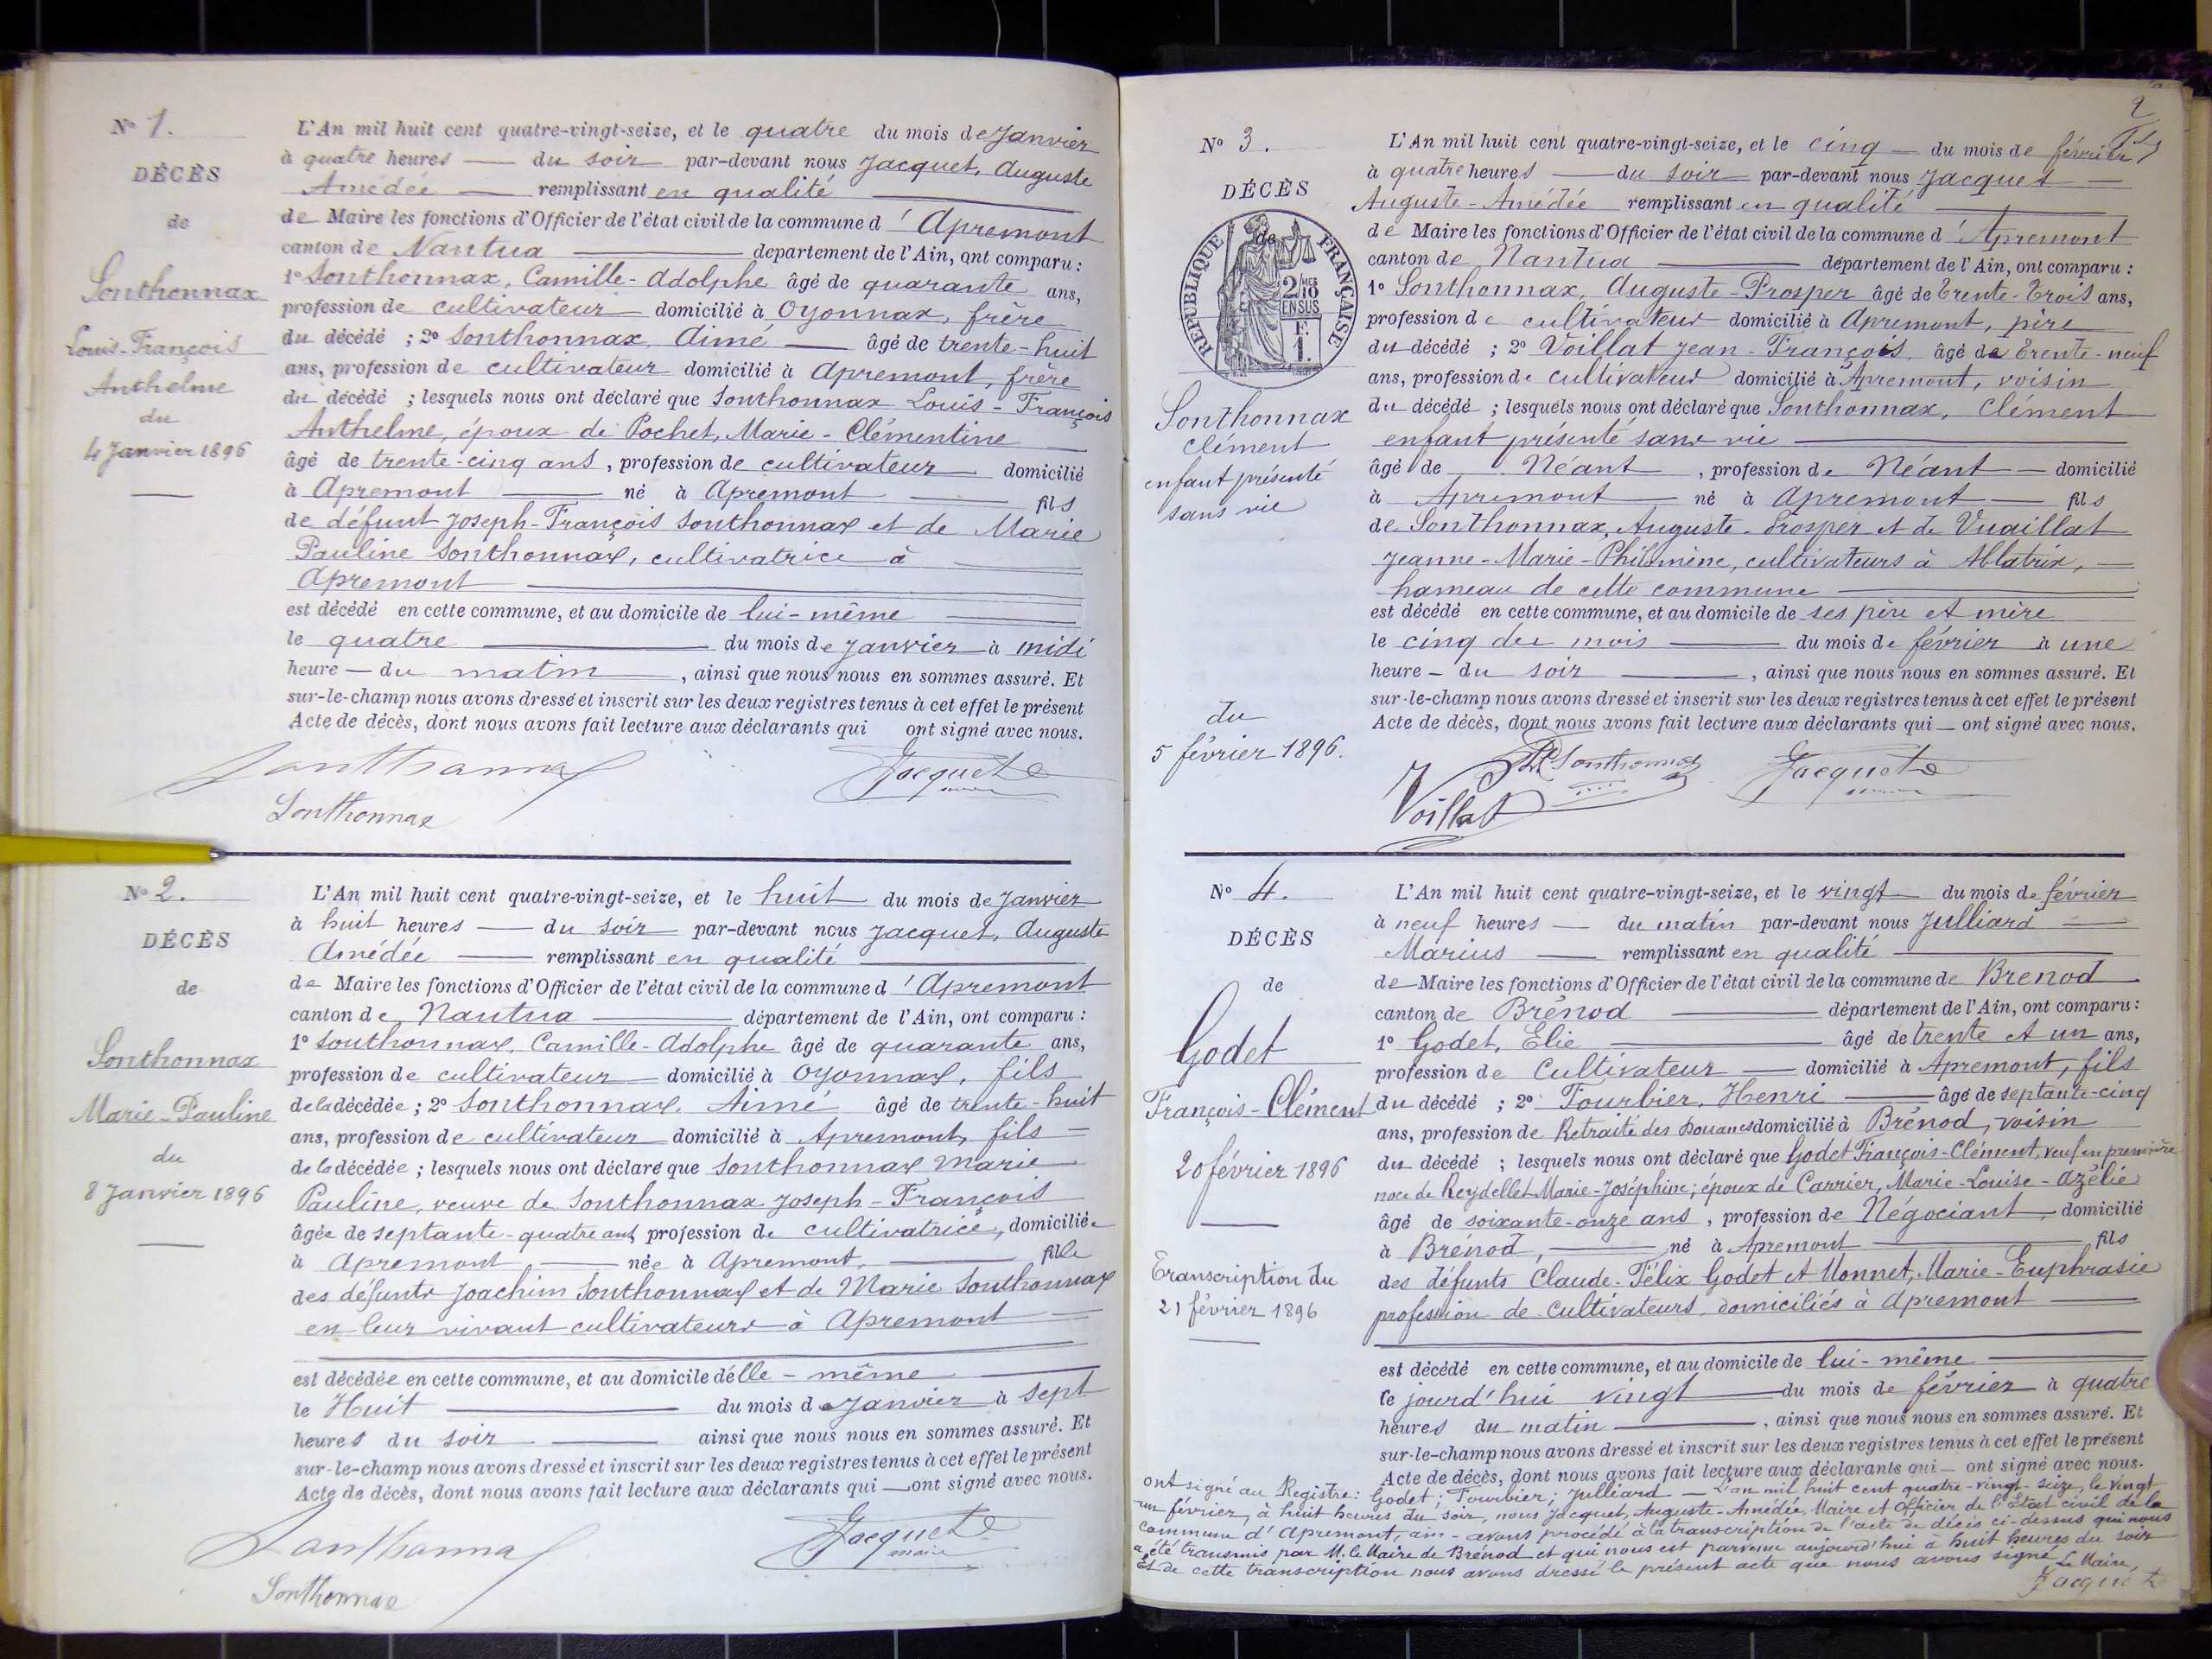 N° 1.
DÉCÈS
de
Sonthonnax
Louis-François
Anthelme
du
4 Janvier 1896
L'An mil huit cent quatre-vingt-seize, et le quatre du mois de Janvier
à quatre heures — du soir par-devant nous Jacquet, Auguste
Amédée — remplissant en qualité
de Maire les fonctions d'Officier de l'état civil de la commune d'Apremont
canton de Nantua — département de l'Ain, ont comparu :
1° Sonthonnax, Camille-Adolphe âgé de quarante ans,
profession de cultivateur domicilié à Oyonnax, frère
du décédé ; 2° Sonthonnax, Aimé — âgé de trente-huit
ans, profession de cultivateur domicilié à Apremont, frère
du décédé ; lesquels nous ont déclaré que Sonthonnax Louis-François
Anthelme, époux de Pochet, Marie-Clémentine
âgé de trente-cinq ans, profession de cultivateur domicilié
à Apremont — né à Apremont — fils
de défunt Joseph-François Sonthonnax et de Marie
Pauline Sonthonnax, cultivatrice à
Apremont
est décédé en cette commune, et au domicile de lui-même
le quatre — du mois de Janvier à midi
heure — du matin —, ainsi que nous nous en sommes assuré. Et
sur-le-champ nous avons dressé et inscrit sur les deux registres tenus à cet effet le présent
Acte de décès, dont nous avons fait lecture aux déclarants qui ont signé avec nous.
Sonthonnax
Jacquet
Sonthonnax
N° 2.
DÉCÈS
de
Sonthonnax
Marie-Pauline
du
8 Janvier 1896
L'An mil huit cent quatre-vingt-seize, et le huit du mois de Janvier
à huit heures — du soir par-devant nous Jacquet, Auguste
Amédée — remplissant en qualité
de Maire les fonctions d'Officier de l'état civil de la commune d'Apremont
canton de Nantua — département de l'Ain, ont comparu :
1° Sonthonnax, Camille-Adolphe âgé de quarante ans,
profession de cultivateur domicilié à Oyonnax, fils
de la décédée ; 2° Sonthonnax, Aimé âgé de trente-huit
ans, profession de cultivateur domicilié à Apremont, fils —
de la décédée ; lesquels nous ont déclaré que Sonthonnax Marie
Pauline, veuve de Sonthonnax Joseph-François
âgée de septante-quatre ans, profession de cultivatrice, domiciliée
à Apremont — née à Apremont, — fille
des défunts Joachim Sonthonnax et de Marie Sonthonnax
en leur vivant cultivateurs à Apremont
est décédée en cette commune, et au domicile d'elle-même
le Huit — du mois de Janvier à sept
heures du soir — ainsi que nous nous en sommes assuré. Et
sur-le-champ nous avons dressé et inscrit sur les deux registres tenus à cet effet le présent
Acte de décès, dont nous avons fait lecture aux déclarants qui — ont signé avec nous.
Sonthonnax
Jacquet
maire
Sonthonnax
2
N° 3.
DÉCÈS
de
RÉPUBLIQUE FRANÇAISE
2/10MES
EN SUS
F.
1.
Sonthonnax
Clément
enfant présenté
sans vie
du
5 février 1896.
L'An mil huit cent quatre-vingt-seize, et le cinq — du mois de février
à quatre heures — du soir par-devant nous Jacquet —
Auguste-Amédée remplissant en qualité
de Maire les fonctions d'Officier de l'état civil de la commune d'Apremont
canton de Nantua — département de l'Ain, ont comparu :
1° Sonthonnax, Auguste-Prosper âgé de trente-trois ans,
profession de cultivateur domicilié à Apremont, père
du décédé ; 2° Voillat Jean-François, âgé de trente-neuf
ans, profession de cultivateur domicilié à Apremont, voisin
du décédé ; lesquels nous ont déclaré que Sonthonnax, Clément
enfant présenté sans vie
âgé de Néant, profession de Néant — domicilié
à Apremont — né à Apremont — fils
de Sonthonnax, Auguste-Prosper et de Vuaillat
Jeanne-Marie-Philomène, cultivateurs à Ablatrix, —
hameau de cette commune
est décédé en cette commune, et au domicile de ses père et mère
le cinq du mois — du mois de février à une
heure — du soir —, ainsi que nous nous en sommes assuré. Et
sur-le-champ nous avons dressé et inscrit sur les deux registres tenus à cet effet le présent
Acte de décès, dont nous avons fait lecture aux déclarants qui — ont signé avec nous.
Sonthonnax
Jacquet
Voillat
N° 4.
DÉCÈS
de
Godet
François-Clément
20 février 1896
Transcription du
21 février 1896
L'An mil huit cent quatre-vingt-seize, et le vingt — du mois de février
à neuf heures — du matin par-devant nous Julliard —
Marius — remplissant en qualité
de Maire les fonctions d'Officier de l'état civil de la commune de Brenod
canton de Brénod — département de l'Ain, ont comparu :
1° Godet, Elie — âgé de trente et un ans,
profession de Cultivateur — domicilié à Apremont, fils
du décédé ; 2° Tourbier, Henri — âgé de septante-cinq
ans, profession de Retraité des Douanes domicilié à Brénod, voisin
du décédé ; lesquels nous ont déclaré que Godet François-Clément, veuf en première
noce de Reydellet Marie-Joséphine; époux de Carrier, Marie-Louise-Azélie
âgé de soixante-onze ans, profession de Négociant, domicilié
à Brénod, — né à Apremont — fils
des défunts Claude-Félix Godet et Monnet, Marie-Euphrasie
profession de cultivateurs domiciliés à Apremont
est décédé en cette commune, et au domicile de lui-même
le jourd'hui vingt — du mois de février à quatre
heures du matin —, ainsi que nous nous en sommes assuré. Et
sur-le-champ nous avons dressé et inscrit sur les deux registres tenus à cet effet le présent
Acte de décès, dont nous avons fait lecture aux déclarants qui — ont signé avec nous.
ont signé au Registre: Godet; Tourbier; Julliard — L'an mil huit cent quatre-vingt-seize, le vingt-
un février, à huit heures du soir, nous Jacquet, Auguste-Amédée, Maire et Officier de l'Etat civil de la
Commune d'Apremont, ain - avons procédé à la transcription de l'acte de décès ci-dessus qui nous
a été transmis par M. le Maire de Brénod et qui nous est parvenu aujourd'hui à huit heures du soir
Et de cette transcription nous avons dressé le présent acte que nous avons signé
Le Maire,
Jacquet